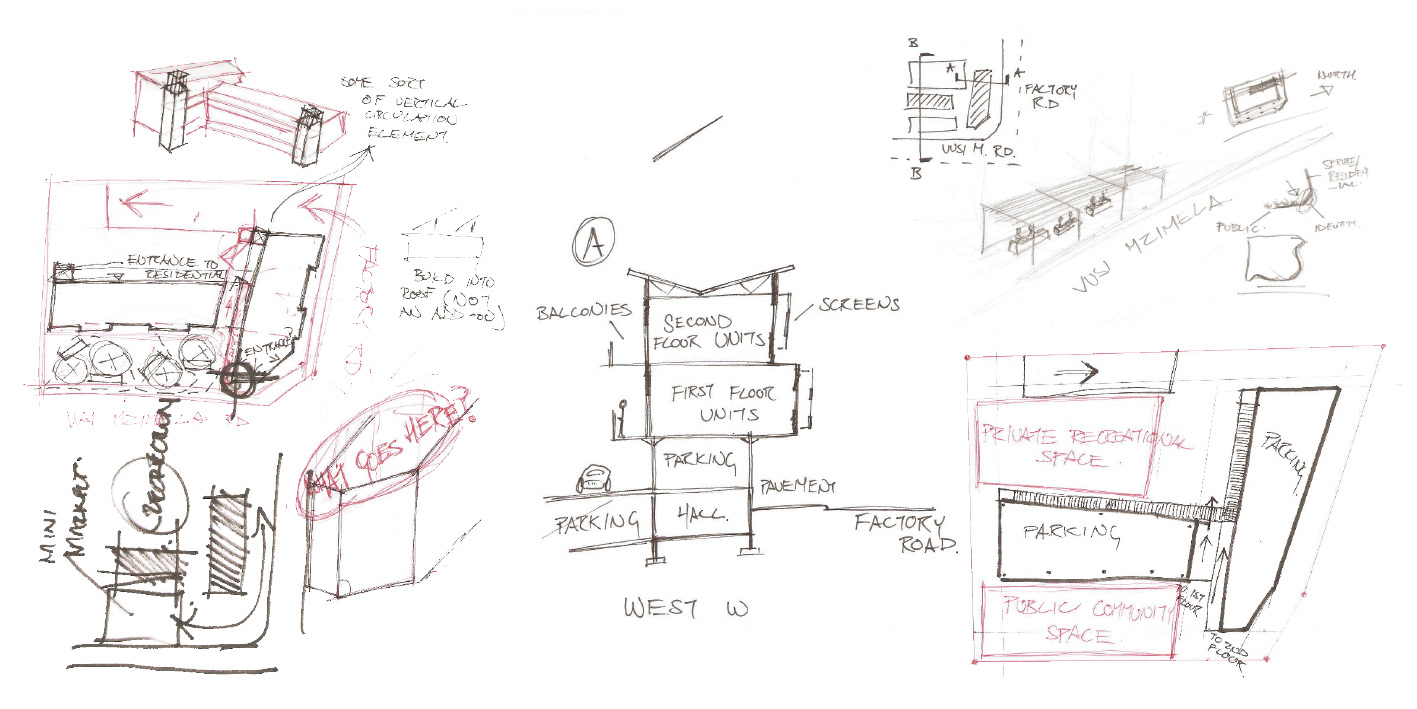 SOME SORT
OF VERTICAL
CIRCULATION
ELEMENT.
ENTRANCE TO
RESIDENTIAL
ENTRANCE
FACTORY RD.
VUSI MZIMELA RD
BUILD INTO
ROOF (NOT
AN ADD-ON)
MINI
MARKET.
WHAT GOES HERE?
A
BALCONIES
SCREENS
SECOND
FLOOR UNITS
FIRST FLOOR
UNITS
PARKING
PAVEMENT
PARKING
HALL.
FACTORY
ROAD.
WEST W
B
A
A
FACTORY
RD
VUSI M. RD.
B
NORTH
SERVICE/
RESIDEN
-IAL.
PUBLIC.
IDENTITY.
VUSI MZIMELA
PRIVATE RECREATIONAL
SPACE.
PARKING
PARKING
PUBLIC COMMUNITY
SPACE.
TO 1ST
FLOOR
TO 2ND
FLOOR.